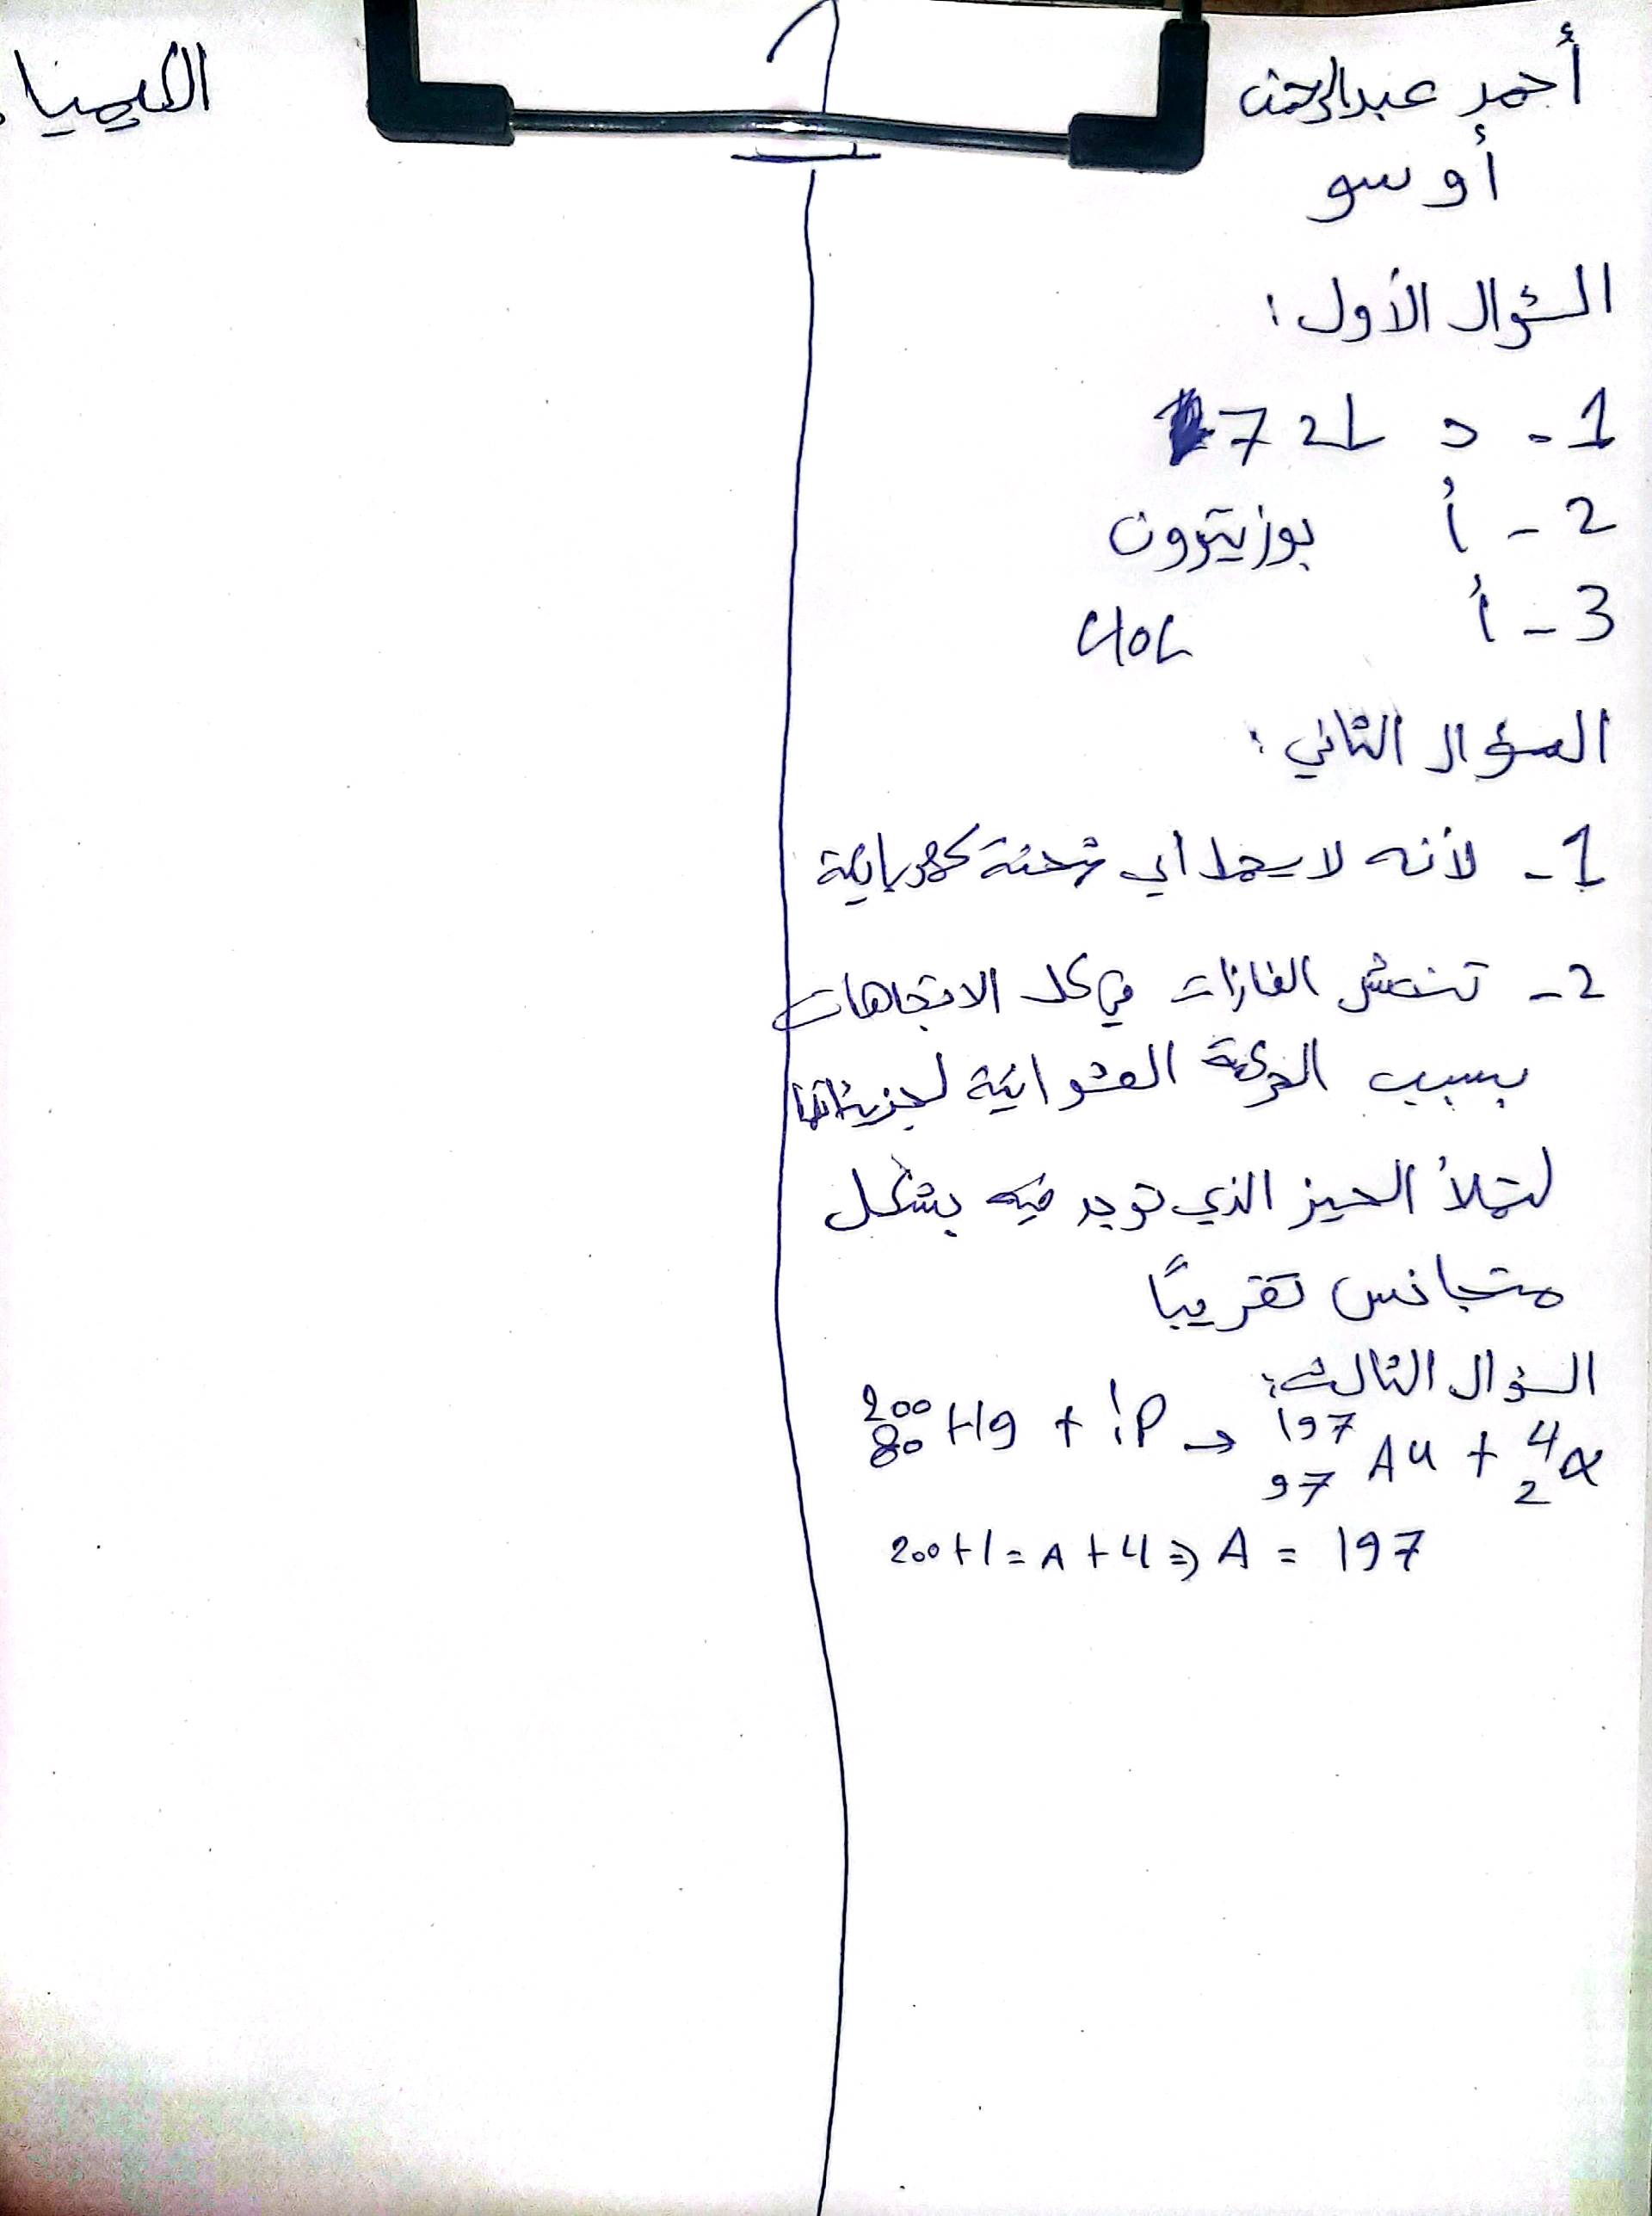 أحمد عبدالرحمن
أوسو
الكيمياء
1
السؤال الأول:
1 - د 72L
2 - أ بوزيترون
3 - أ
السؤال الثاني:
1 - لأنه لا يحمل أي شحنة كهربائية
2 - تنتشر الغازات في كل الاتجاهات
بسبب الحركة العشوائية لجزيئاتها
لتملأ الحيز الذي توجد فيه بشكل
متجانس تقريبًا
السؤال الثالث:
²⁰⁰₈₀Hg + ¹₁P → ¹⁹⁷₉₇Au + ⁴₂α
200+1=A+4⇒A = 197